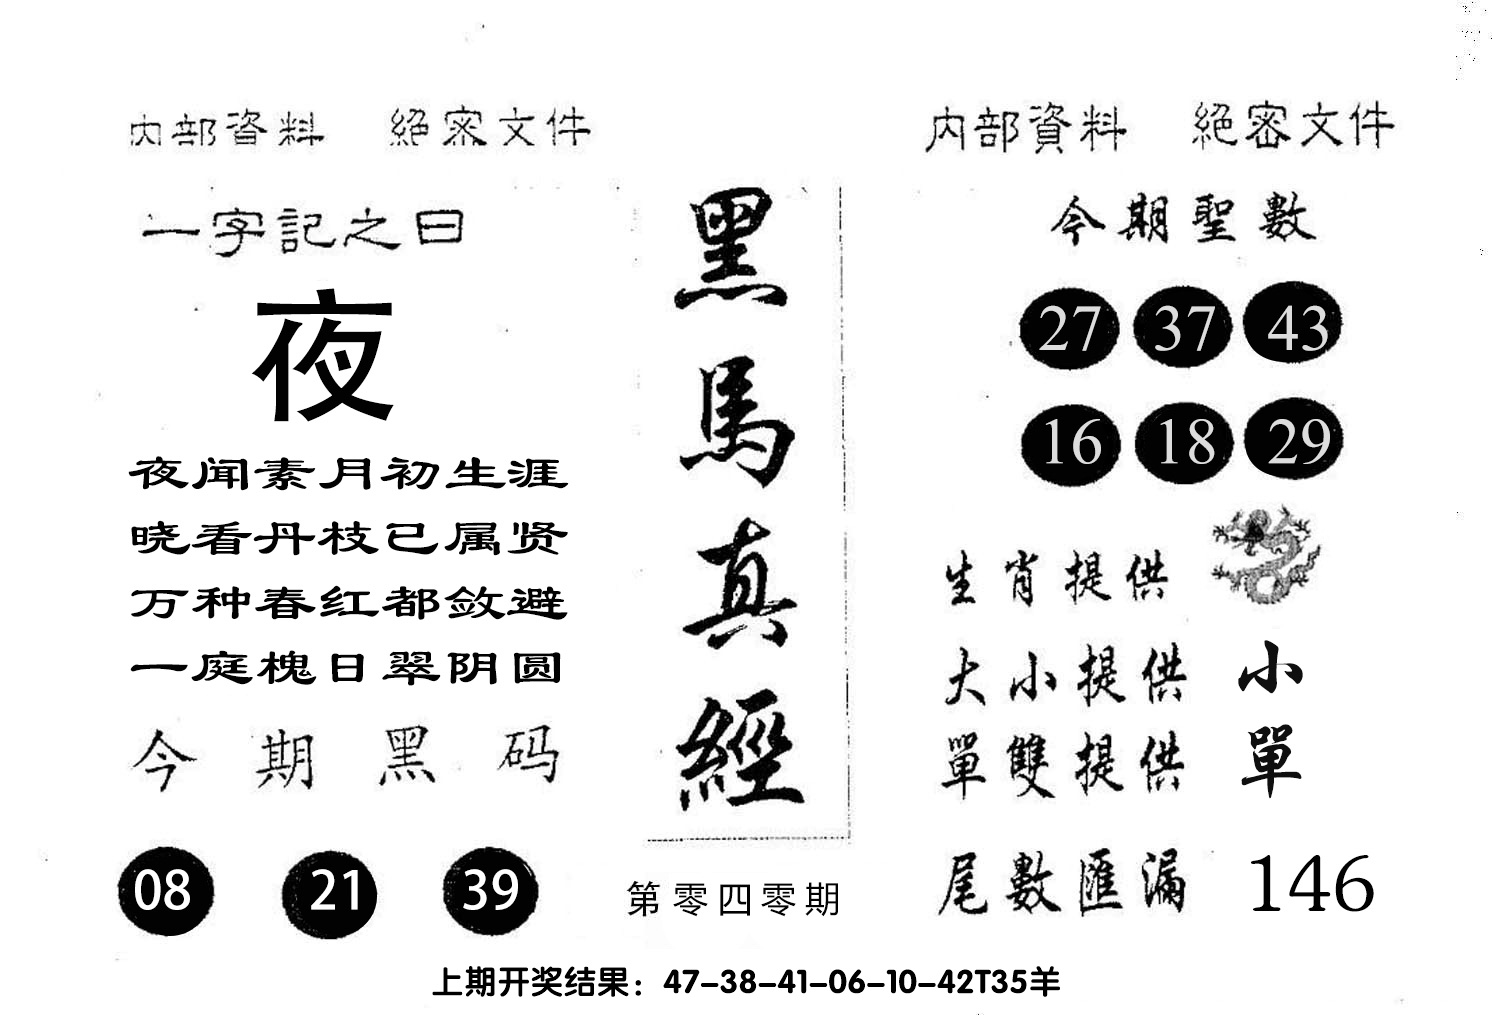 内部資料 絕密文件
一字記之曰
夜
夜闻素月初生涯
晓看丹枝已属贤
万种春红都敛避
一庭槐日翠阴圆
今期黑码
08 21 39
黑馬真經
第零四零期
内部資料 絕密文件
今期聖數
27 37 43
16 18 29
生肖提供
大小提供 小
單雙提供 單
尾數匯漏 146
上期开奖结果：47-38-41-06-10-42T35羊